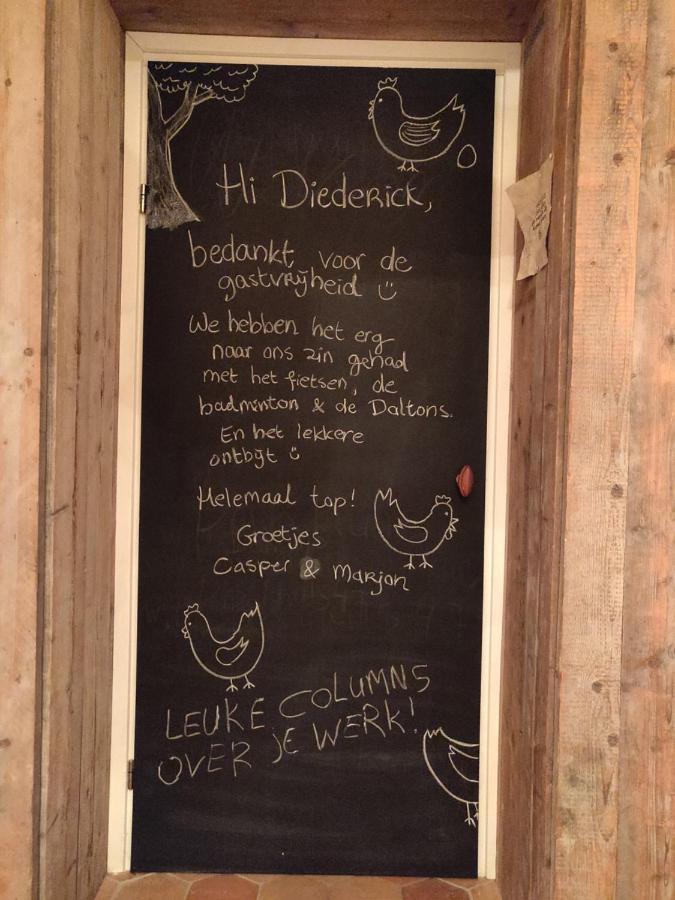 Hi Diederick,
bedankt voor de
gastvrijheid
We hebben het erg
naar ons zin gehad
met het fietsen, de
badminton & de Daltons.
En het lekkere
ontbijt
Helemaal top!
Groetjes
Casper & Marjan
LEUKE COLUMNS
OVER JE WERK!